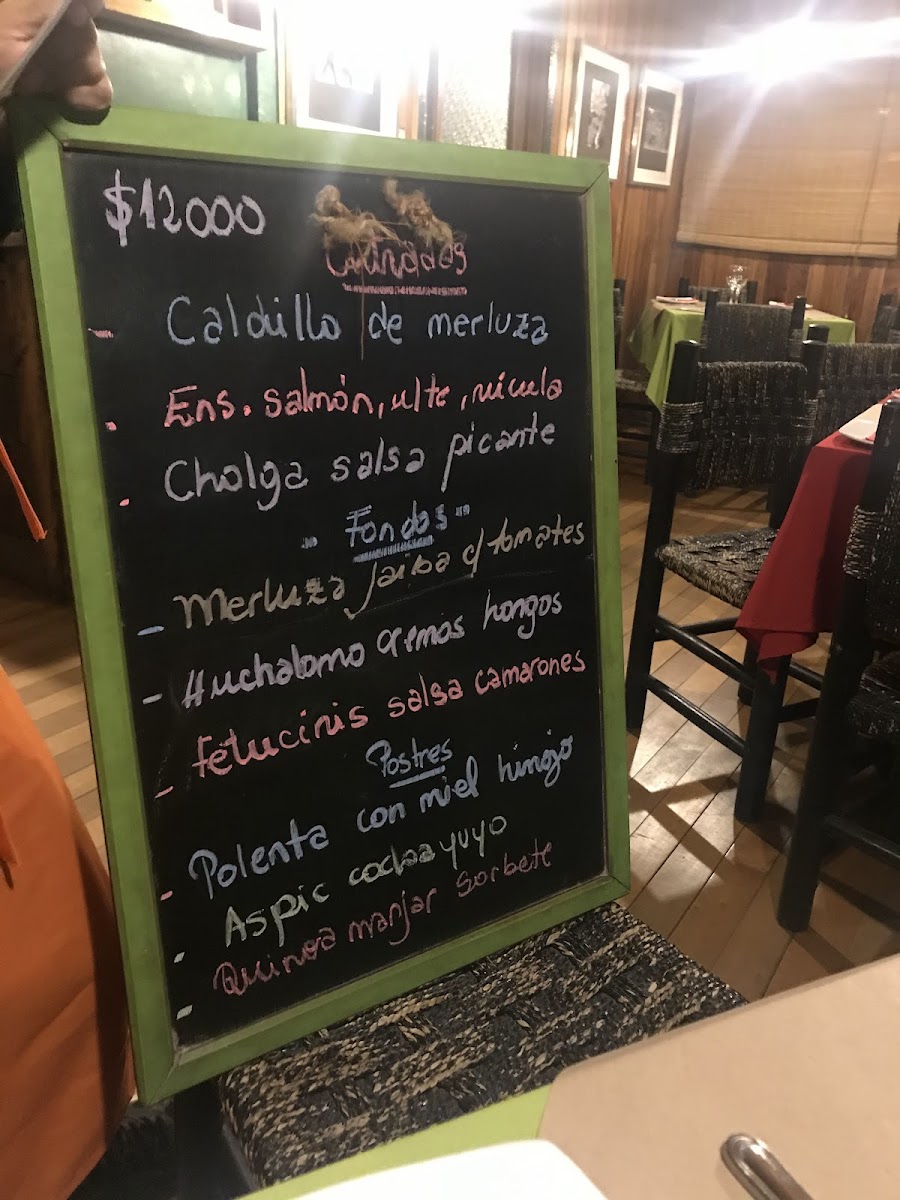 $12000
Entradas
- Caldillo de merluza
- Ens. salmón, ulte, rúcula
- Cholga salsa picante
" Fondos "
- Merluza jaiba c/ tomates
- Huachalomo cremos hongos
- Fetucinis salsa camarones
Postres
- Polenta con miel hinojo
- Aspic cochayuyo
- Quinoa manjar sorbete